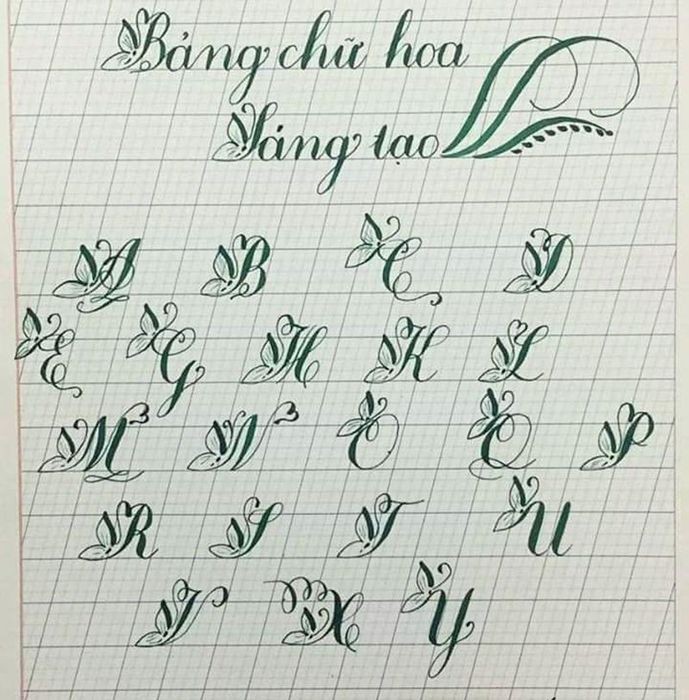 Bảng chữ hoa
Sáng tạo
A B C D
E G H K L
M N O Q P
R S T U
V X Y